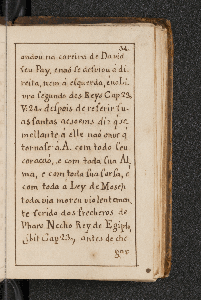 34.
andou na carreira de David
seu Pay, e naõ se desviou á di
reita, nem á esquerda, en el li
vro segundo dos Reys Cap. 23.
V. 24. despois de referir su
as santas acsoems diz que se
mellante á elle naõ ouve q̃
tornase á A. com todo seu
coracaõ, e com toda sua Al
ma, e com toda sua forsa, e
com toda a Ley de Moseh
todavia moreu violentemen
te ferido dos frecheros de
Pharo Necho Rey de Egipto,
ibit Cap. 23., antes de che
gar